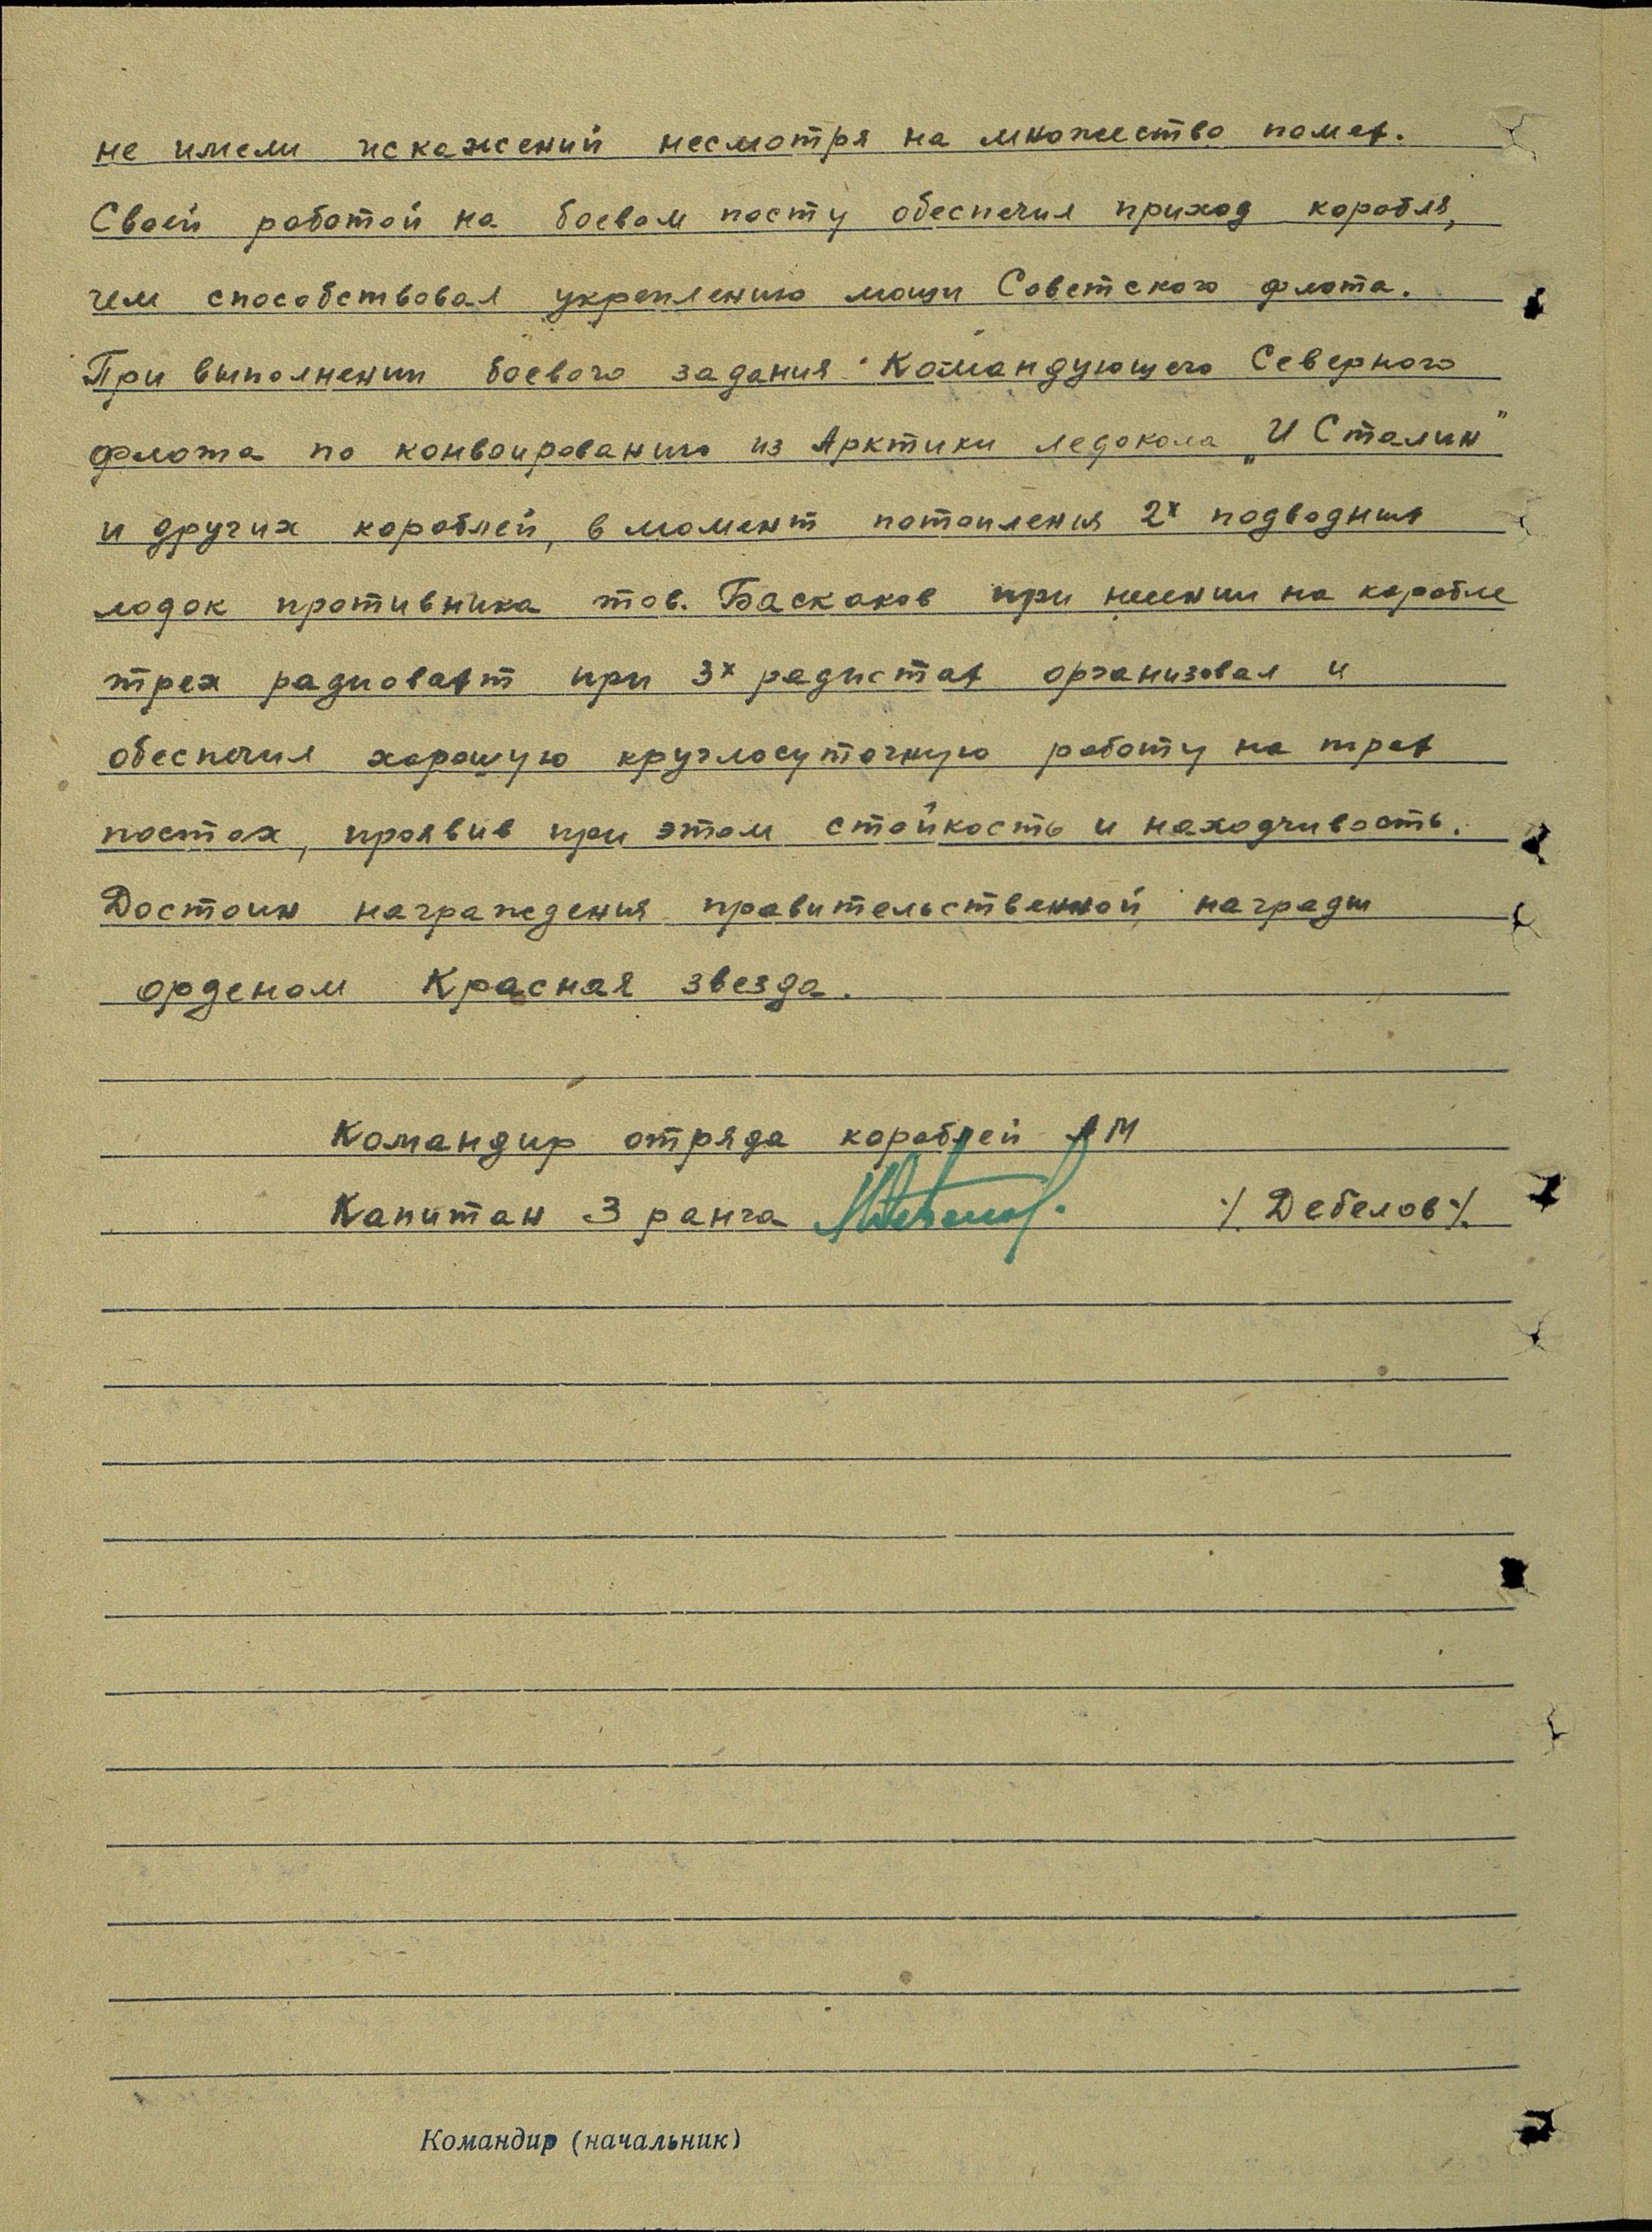 не имели искажений несмотря на множество помех.
Своей работой на боевом посту обеспечил приход корабля,
чем способствовал укреплению мощи Советского флота.
При выполнении боевого задания Командующего Северного
флота по конвоированию из Арктики ледокола „И Сталин"
и других кораблей, в момент потопления 2х подводных
лодок противника тов. Баскаков при наличии на корабле
трех радиовахт при 3х радистах организовал и
обеспечил хорошую круглосуточную работу на трех
постах, проявив при этом стойкость и находчивость.
Достоин награждения правительственной награды
орденом Красная звезда.
Командир отряда кораблей АМ
Капитан 3 ранга /Дебелов/
Командир (начальник)